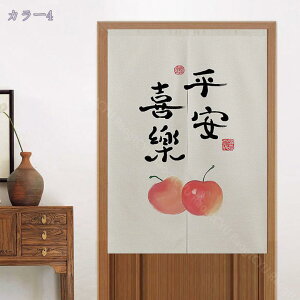 カラー4
平安
喜樂